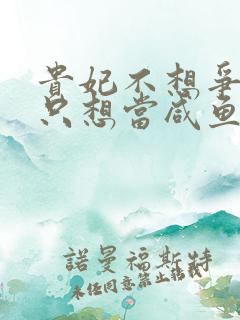 貴妃不想爭
只想當咸魚
諾曼福斯特
未經同意禁止轉載